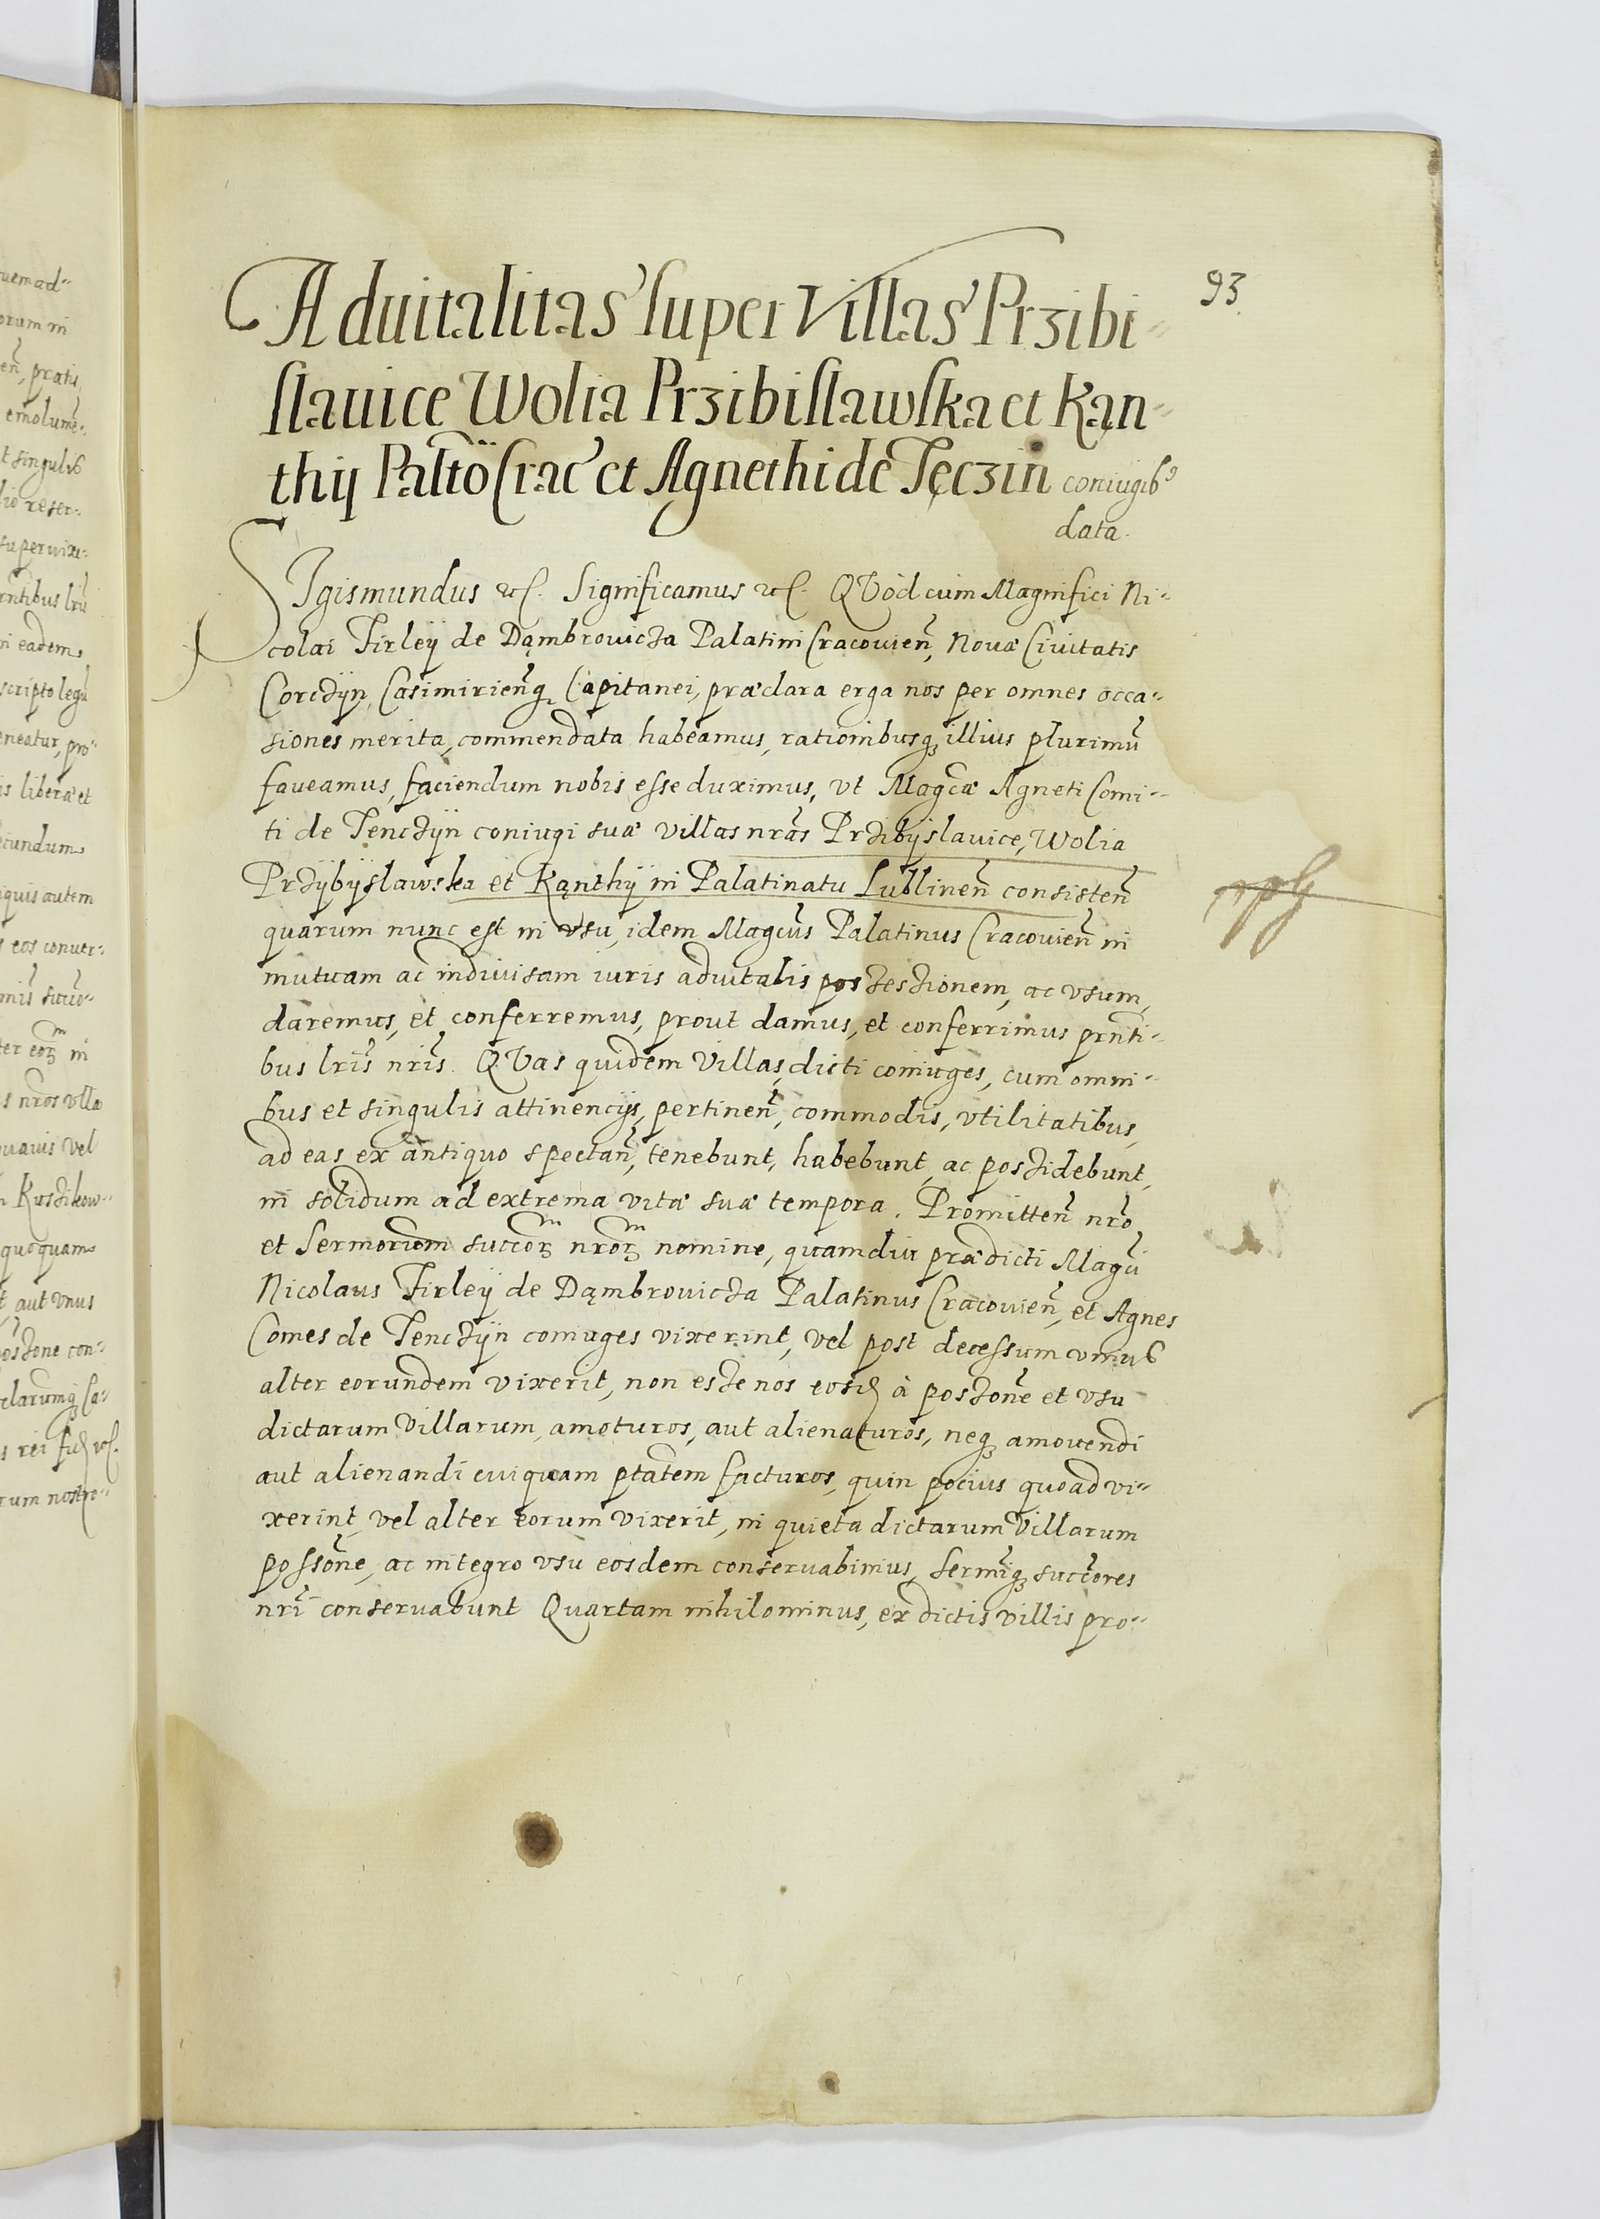 93.
Advitalitas super Villas Przibi-
slauice Wolia Przibislawska et Kąn-
thij Paltō Crac̄ et Agnethi de Tęczin coniugib9
data.
SIgismundus etc. Significamus etc. QVod cum Magnifici Ni-
colai Firleÿ de Dąmbrouicza Palatini Cracouien̄, Novæ Ciuitatis
Corczÿn, Casimirien̄q̨ Capitanei, præclara erga nos per omnes occa-
siones merita, commendata habeamus, rationibusq̨ illius plurimū
faveamus, faciendum nobis esse duximus, vt Magc̄æ Agneti Comi-
ti de Tenczÿn coniugi suæ villas nr̄as Przibÿslauice, Wolia
Przÿbÿslawska et Kąnthÿ in Palatinatu Lublinen̄ consisten̄
quarum nunc est in vsu, idem Magcūs Palatinus Cracouien̄ in
mutuam ac indiuisam iuris aduitalis possessionem, ac vsum,
daremus, et conferremus, prout damus, et conferrimus prn̄ti-
bus lr̄is nr̄is. QVas quidem Villas, dicti coniuges, cum omni-
bus et singulis attinencÿs, pertinen̄, commodis, vtilitatibus,
ad eas ex antiquo spectan̄, tenebunt, habebunt, ac possidebunt,
in solidum ad extrema vitæ suæ tempora. Promitten̄ nr̄o
et Sermorum succor̄ nror̄ nomine, quamdiu prædicti Magcī
Nicolaus Firleÿ de Dąmbrouicza Palatinus Cracouien̄, et Agnes
Comes de Tenczÿn coniuges vixerint, vel post decessum vnius
alter eorundem vixerit, non esse nos eosd à possone et vsu
dictarum Villarum, amoturos, aut alienaturos, neq̨ amouendi
aut alienandi cuiquam ptatem facturos, quin pocius quoad vi-
xerint, vel alter eorum vixerit, in quieta dictarum Villarum
possone, ac integro vsu eosdem conseruabimus, Sermiq̨ succores
nrī conseruabunt Quartam nihilominus, ex dictis villis pro-